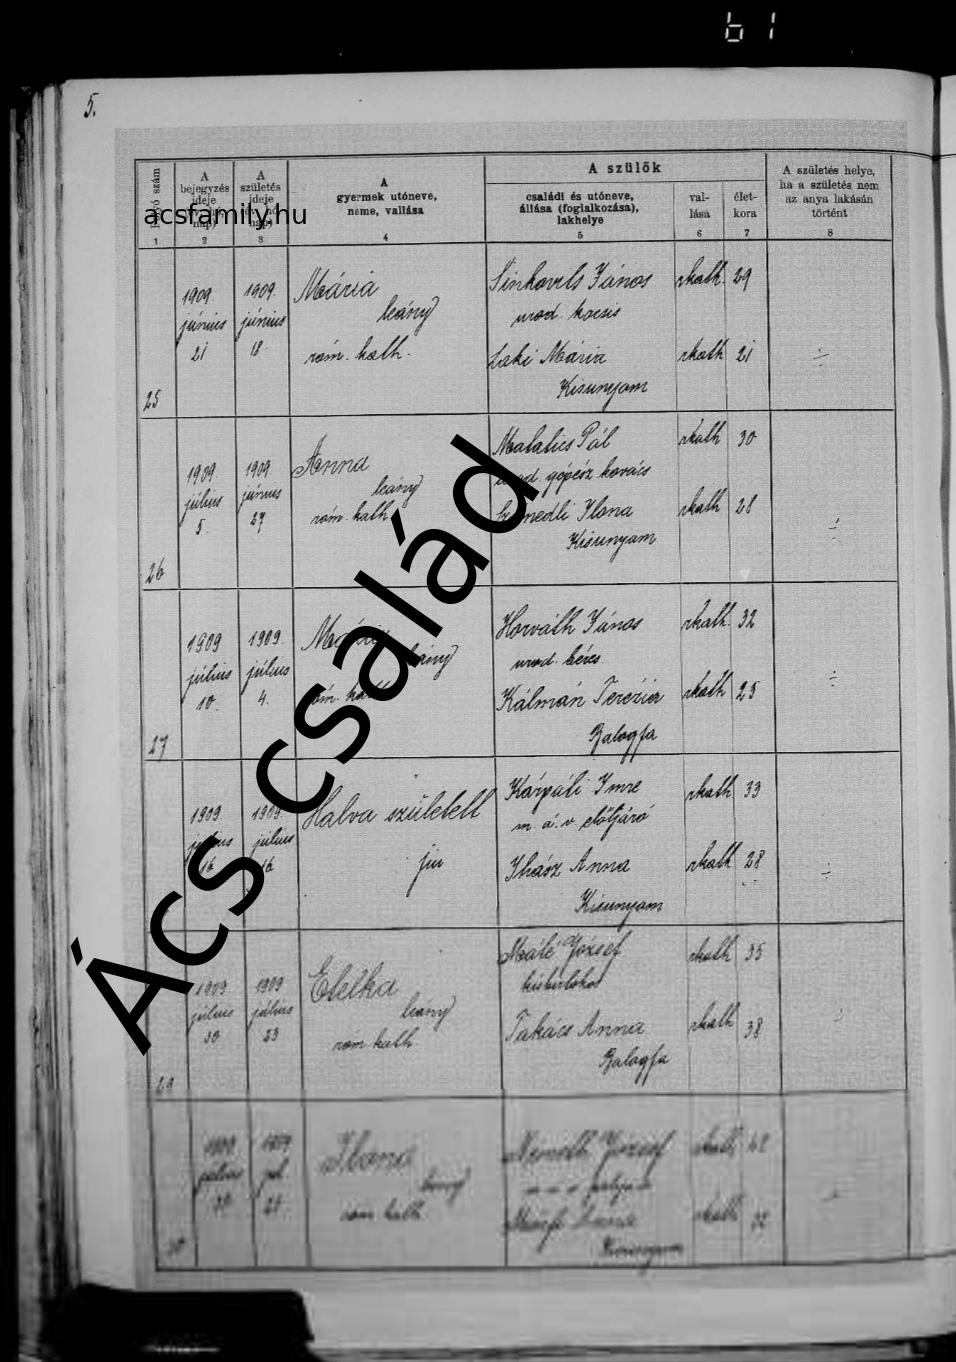 61
5.
Folyó szám
A bejegyzés ideje
A születés ideje
A gyermek utóneve, neme, vallása
A szülők
családi és utóneve, állása (foglalkozása), lakhelye
val-lása
élet-kora
A születés helye, ha a születés nem az anya lakásán történt
acsfamily.hu
1 2 3 4 5 6 7 8
1909. 1909. Mária Sinkovits János rkath. 29
június június leány urad. kocsis
21 18. róm. kath. Laki Mária rkath 21
25 Kisunyom
1909 1909. Anna Malatics Pál rkath 30
július június leány urad. gépész kovács
5. 27 róm. kath Ilona rkath 28
26 Kisunyom
1909 1909. Mária Horváth János rkath. 32
július július leány urad. béres
10. 4. róm. kath Kálmán Terézia rkath 25
27 Balogfa
1909. 1909. Halva született Kárpáti Imre rkath 33
július július fiu m. á. v. előljáró
16 16 Ihász Anna rkath 28
Kisunyom
1909 1909 Etelka Máté József rkath 35
július július leány kisbirtokos
30 23 róm. kath Takács Anna rkath 38
29 Balogfa
1909 1909 Ilona Németh József rkath 42
július jul. leány
30 róm. kath Anna rkath
30 Kisunyom
Ács család